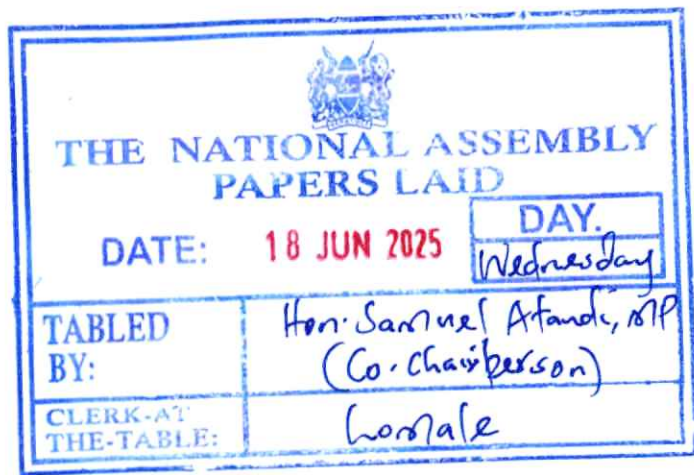 THE NATIONAL ASSEMBLY
PAPERS LAID
DATE: 18 JUN 2025
DAY.
Wednesday
TABLED BY:
Hon. Samuel Atandi, MP
(Co-Chairperson)
CLERK-AT THE-TABLE: